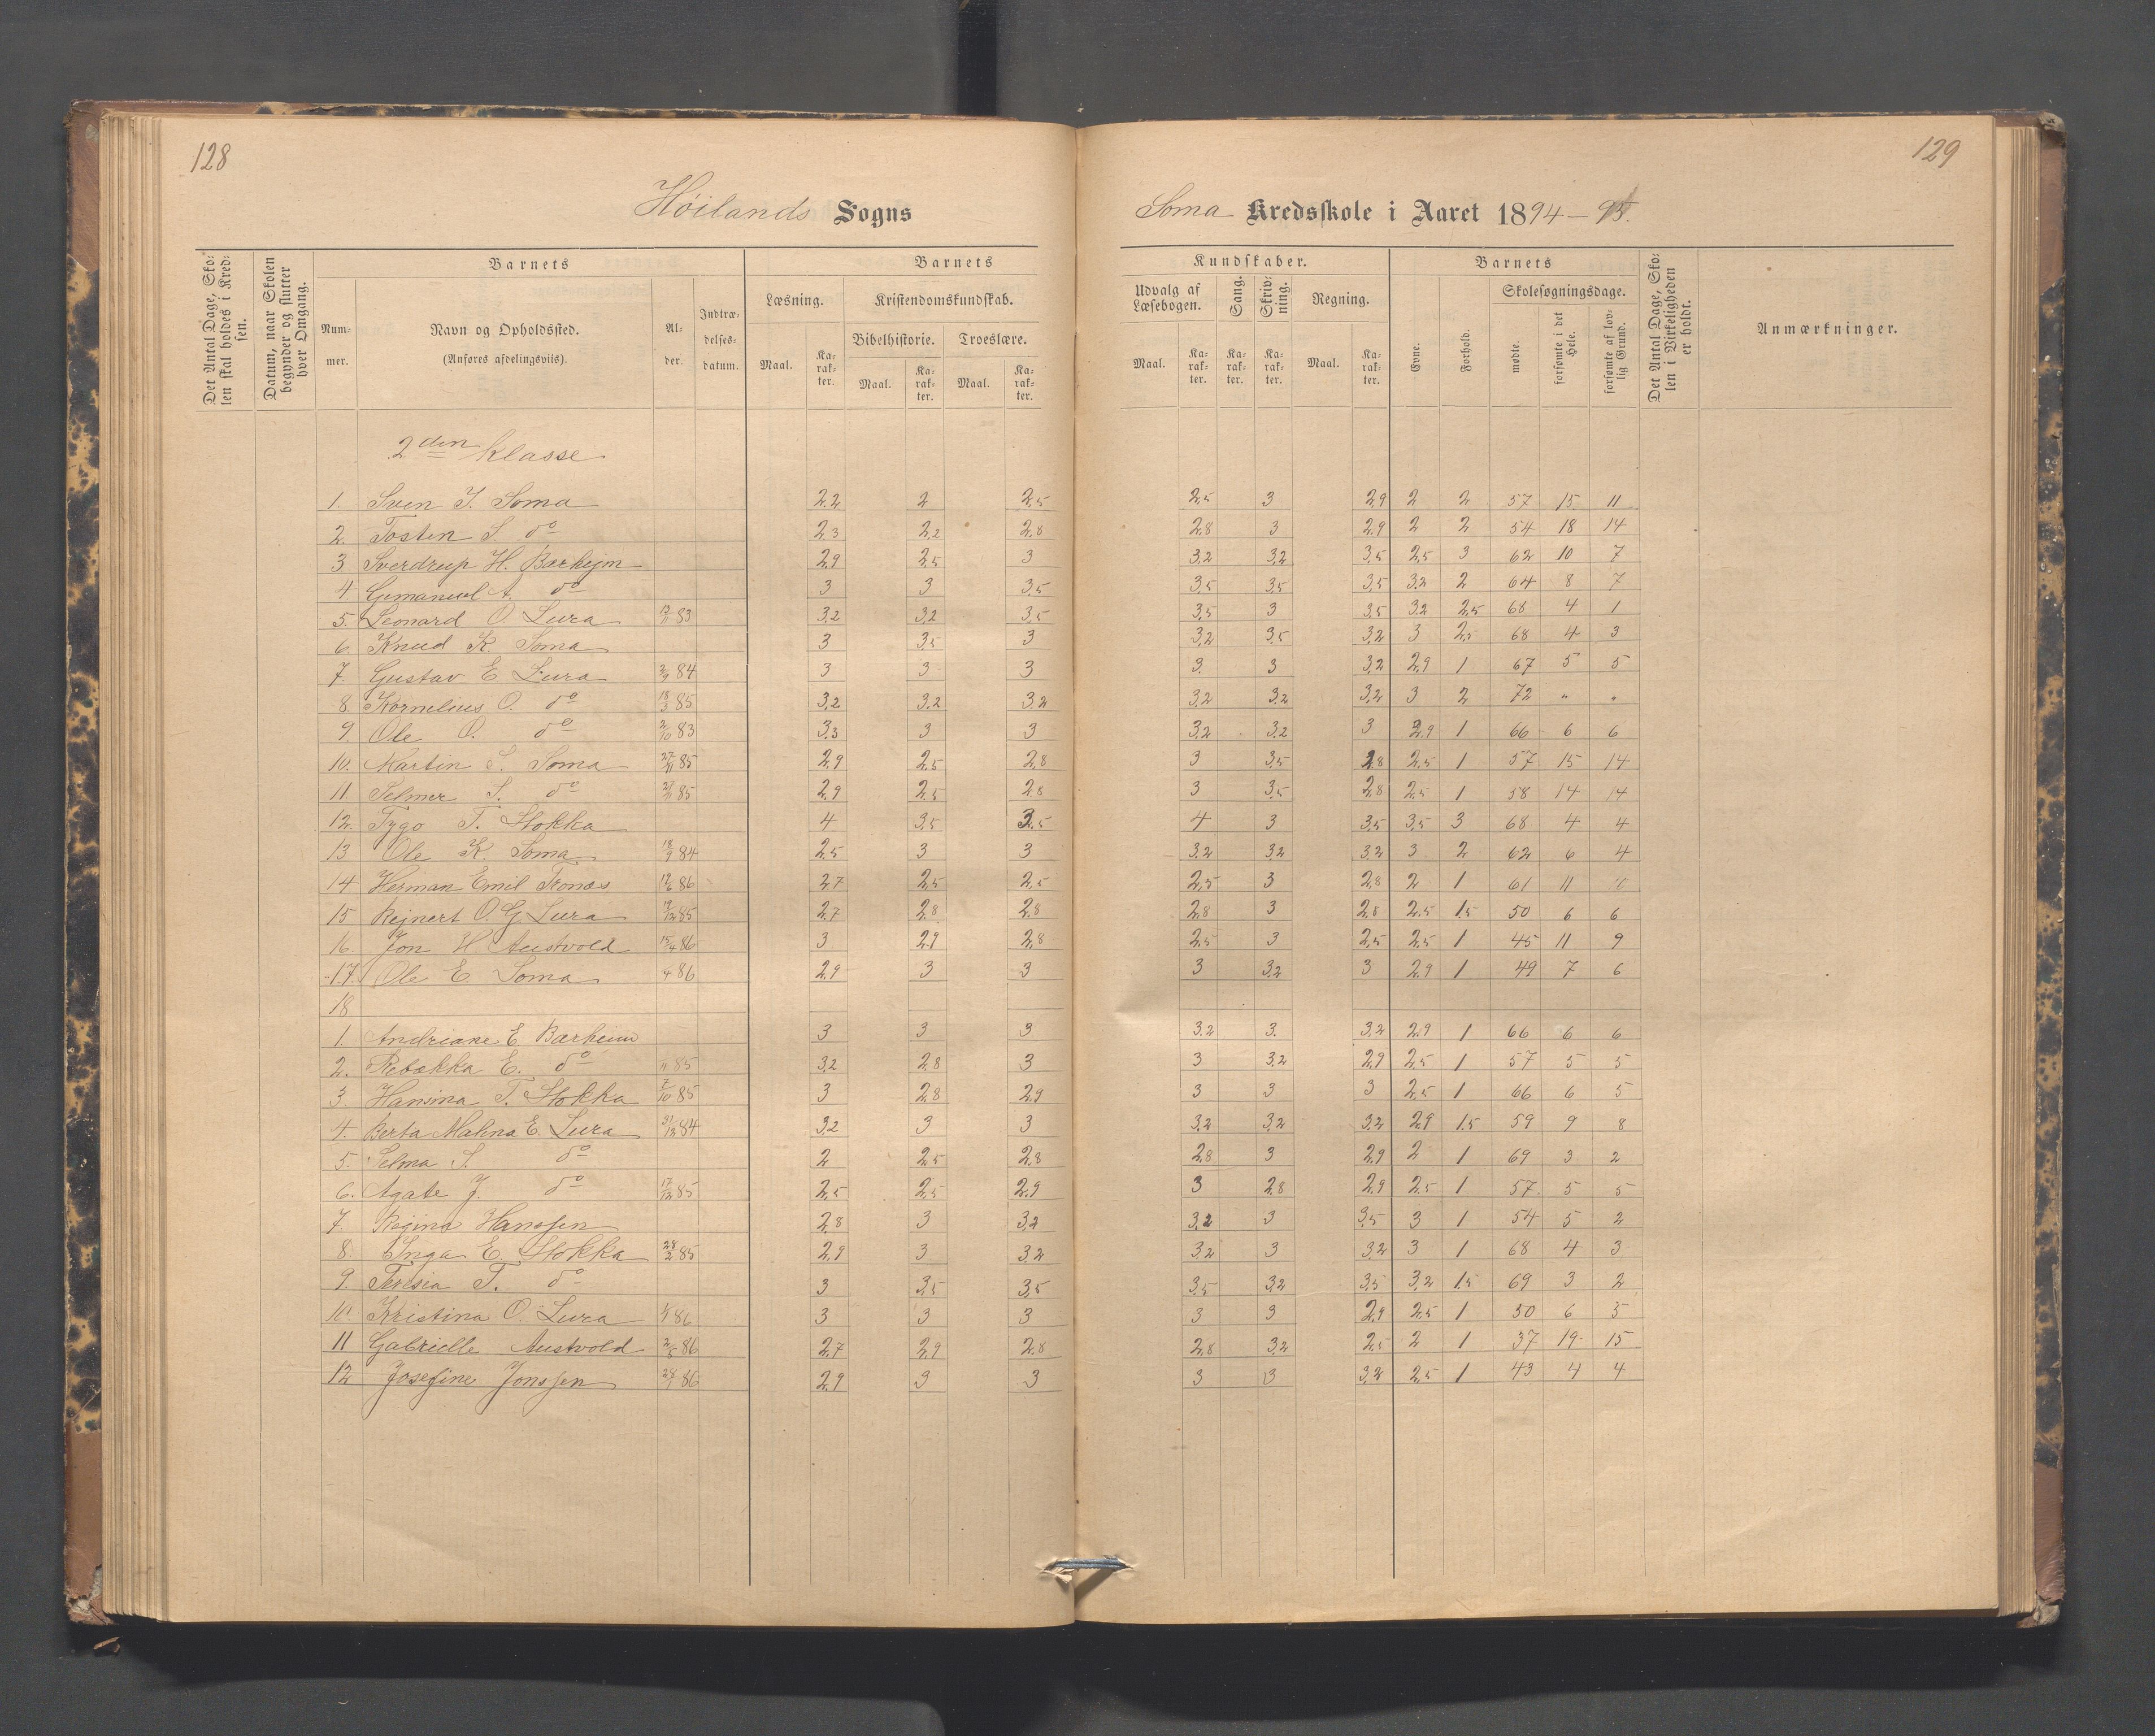 128
129
Høilands Sogns
Soma Kredsskole i Aaret 1894–95.
Det Antal Dage, Sko-
len skal holdes i Kred-
sen.
Datum, naar Skolen
begynder og slutter
hver Omgang.
Barnets
Num-
mer.
Navn og Opholdssted.
(Anføres afdelingsviis).
Al-
der.
Indtræ-
delses-
datum.
Barnets
Læsning.
Maal.
Ka-
rak-
ter.
Kristendomskundskab.
Bibelhistorie.
Maal.
Ka-
rak-
ter.
Troeslære.
Maal.
Ka-
rak-
ter.
Kundskaber.
Udvalg af
Læsebogen.
Maal.
Ka-
rak-
ter.
Sang.
Ka-
rak-
ter.
Skriv-
ning.
Ka-
rak-
ter.
Regning.
Maal.
Ka-
rak-
ter.
Barnets
Evne.
Forhold.
Skolesøgningsdage.
mødte.
forsømte i det
Hele.
forsømte af lov-
lig Grund.
Det Antal Dage, Sko-
len i Virkeligheden
er holdt.
Anmærkninger.
2den klasse
1. Sven T. Soma 2,2 2 2,5 2,5 3 2,9 2 2 57 15 11
2. Tosten S. do 2,3 2,2 2,8 2,8 3 2,9 2 2 54 18 14
3 Sverdrup H. Barheim 2,9 2,5 3 3,2 3,2 3,5 2,5 3 62 10 7
4 A. do 3 3 3,5 3,5 3,5 3,5 3,2 2 64 8 7
5. Leonard O Lura 83 3,2 3,2 3,5 3,5 3 3,5 3,2 2,5 68 4 1
6. Knud K Soma 3 3,5 3 3,2 3,5 3,2 3 2,5 68 4 3
7. Gustav E Lura 84 3 3 3 3 3 3,2 2,9 1 67 5 5
8. Kornelius O. do 18/3 85 3,2 3,2 3,2 3,2 3,2 3,2 3 2 72 " "
9. Ole O. do 2/10 83 3,3 3 3 3,2 3,2 3 2,9 1 66 6 6
10. Martin S. Soma 27/11 85 2,9 2,5 2,8 3 3,5 2,8 2,5 1 57 15 14
11 Selmer S. do 27/11 85 2,9 2,5 2,8 3 3,5 2,8 2,5 1 58 14 14
12. Tygo T. Stokka 4 3,5 3,5 4 3 3,5 3,5 3 68 4 4
13 Ole K. Soma 18/9 84 2,5 3 3 3,2 3,2 3,2 3 2 62 6 4
14 Herman Emil Tronæs 86 2,7 2,5 2,5 2,5 3 2,8 2 1 61 11
15 Rejnert O. G. Lura 85 2,7 2,8 2,8 2,8 3 2,8 2,5 1,5 50 6 6
16. Jon H. Austvold 15/4 86 3 2,9 2,8 2,5 3 2,5 2,5 1 45 11 9
17. Ole E. Soma 4 86 2,9 3 3 3 3,2 3 2,9 1 49 7 6
18
1. Andriane E. Barheim 3 3 3 3,2 3. 3,2 2,9 1 66 6 6
2. Rebekka E. do 11 85 3,2 2,8 3 3 3,2 2,9 2,5 1 57 5 5
3. Hansina T. Stokka 7/10 85 3 2,8 2,9 3 3 3 2,5 1 66 6 5
4. Berta Malena E. Lura 31/12 84 3,2 3 3 3,2 3,2 3,2 2,9 1,5 59 9 8
5. Selma S. do 2 2,5 2,8 2,8 3 2,9 2 1 69 3 2
6. Agate J. do 17/12 85 2,5 2,5 2,9 3 2,8 2,9 2,5 1 57 5 5
7. Regina Hanssen 2,8 3 3,2 3,2 3 3,5 3 1 54 5 2
8. Inga E. Stokka 28/2 85 2,9 3 3,2 3,2 3 3,2 3 1 68 4 3
9. Teresia T. do 3 3,5 3,5 3,5 3,2 3,5 3,2 1,5 69 3 2
10 Kristina O. Lura 86 3 3 3 3 3 2,9 2,5 1 50 6 5
11 Gabrielle Austvold 2/5 86 2,7 2,9 2,8 2,8 3,2 2,5 2 1 37 19 15
12 Josefine Jonssen 86 2,9 3 3 3 3 3,2 2,5 1 43 4 4